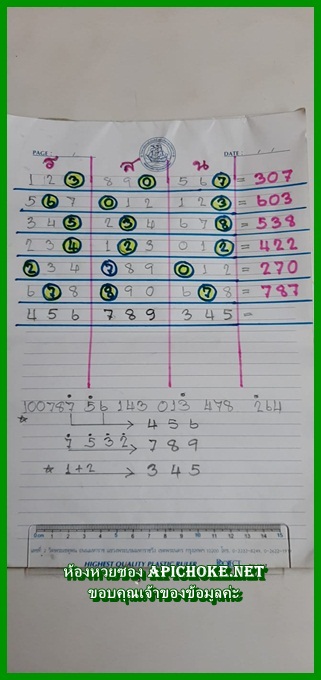 PAGE : DATE :
ร ส น
1 2 3 8 9 0 5 6 7 = 307
5 6 7 0 1 2 1 2 3 = 603
3 4 5 2 3 4 6 7 8 = 538
2 3 4 1 2 3 0 1 2 = 422
2 3 4 7 8 9 0 1 2 = 270
6 7 8 8 9 0 6 7 8 = 787
4 5 6 7 8 9 3 4 5 =
100787 56 143 013 478 264
→ 4 5 6
7 5 3 2 → 7 8 9
1 + 2 → 3 4 5
0cm 1 2 3 4 5 6 7 8 9 10 11 12 13 14 15
HIGHEST QUALITY PLASTIC RULER
ห้องหวยซอง APICHOKE.NET
ขอบคุณเจ้าของข้อมูลค่ะ